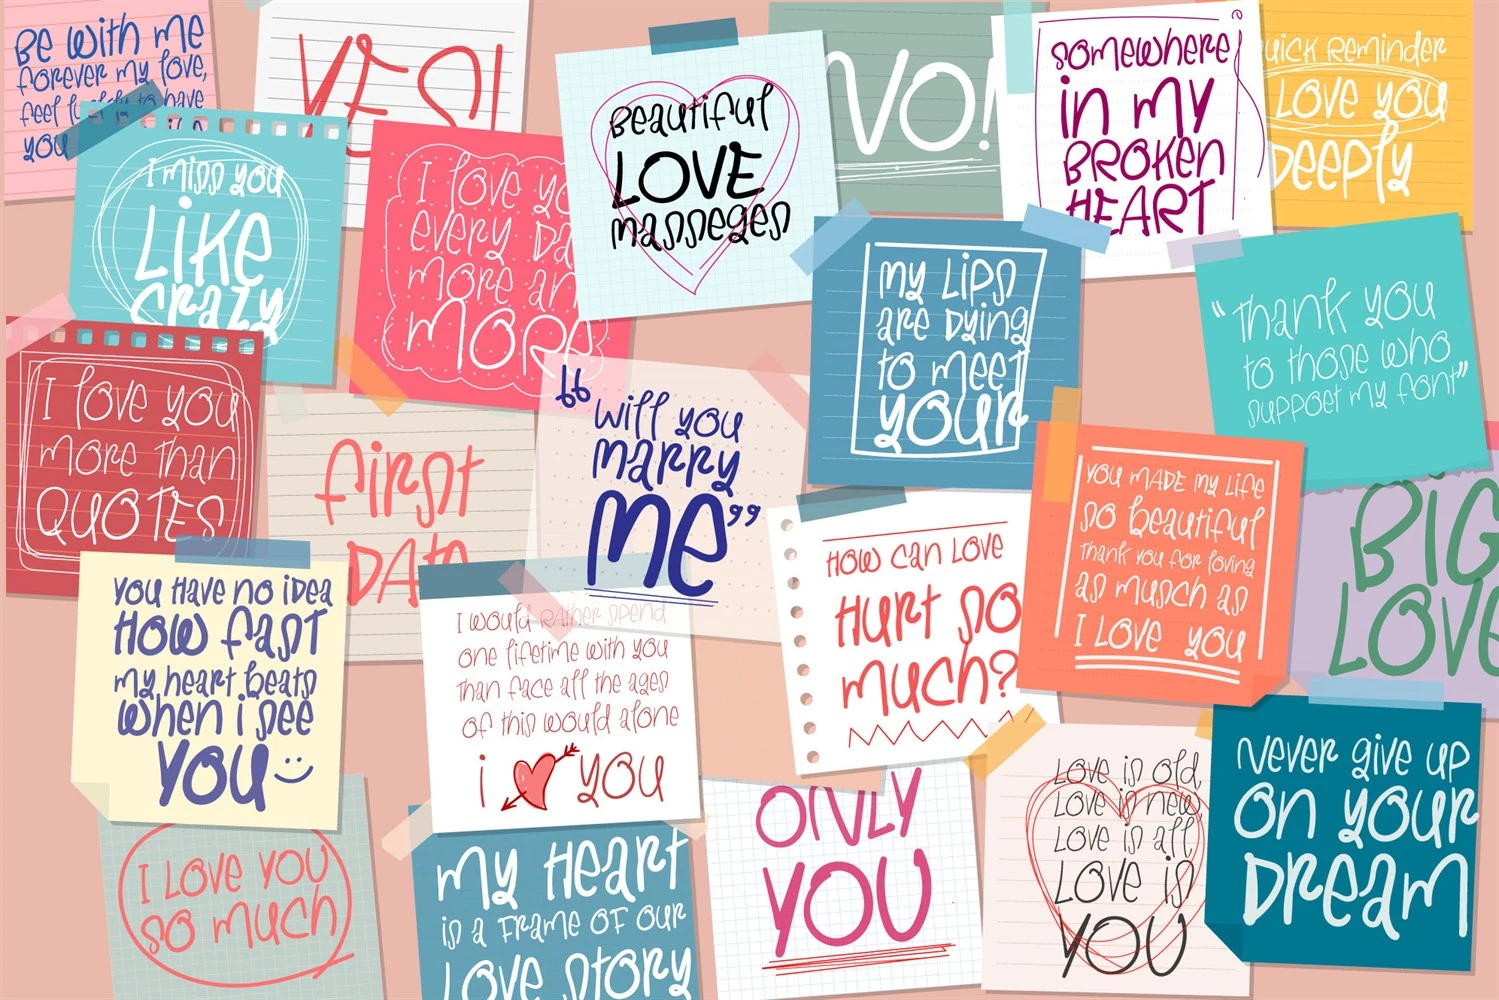 Be with me
forever my love,
feel lucky to have
you
YES!
Beautiful
LOVE
massages
NO!
somewhere
in my
BROKEN
HEART
QUICK REMINDER
LOVE you
Deeply
I miss you
LIKE
CRAZY
I love you
every day
more and
MORE
my lips
are dying
to meet
your
“Thank you
to those who
suppoet my font”
I love you
more than
QUOTES
first
DATE
“will you
marry
me”
HOW CAN LOVE
HURT SO
much?
YOU MADE MY LIFE
so beautiful
Thank you for loving
as musch as
I LOVE you
BIG
LOVE
you have no idea
HOW fast
my heart beats
when i see
YOU
I would rather spend
one lifetime with you
than face all the ages
of this would alone
i YOU
I LOVE YOU
so much
My Heart
is a frame of our
LOVE STORY
ONLY
YOU
LOVE is old,
LOVE is new,
LOVE is all,
LOVE is
YOU
Never give up
on your
Dream